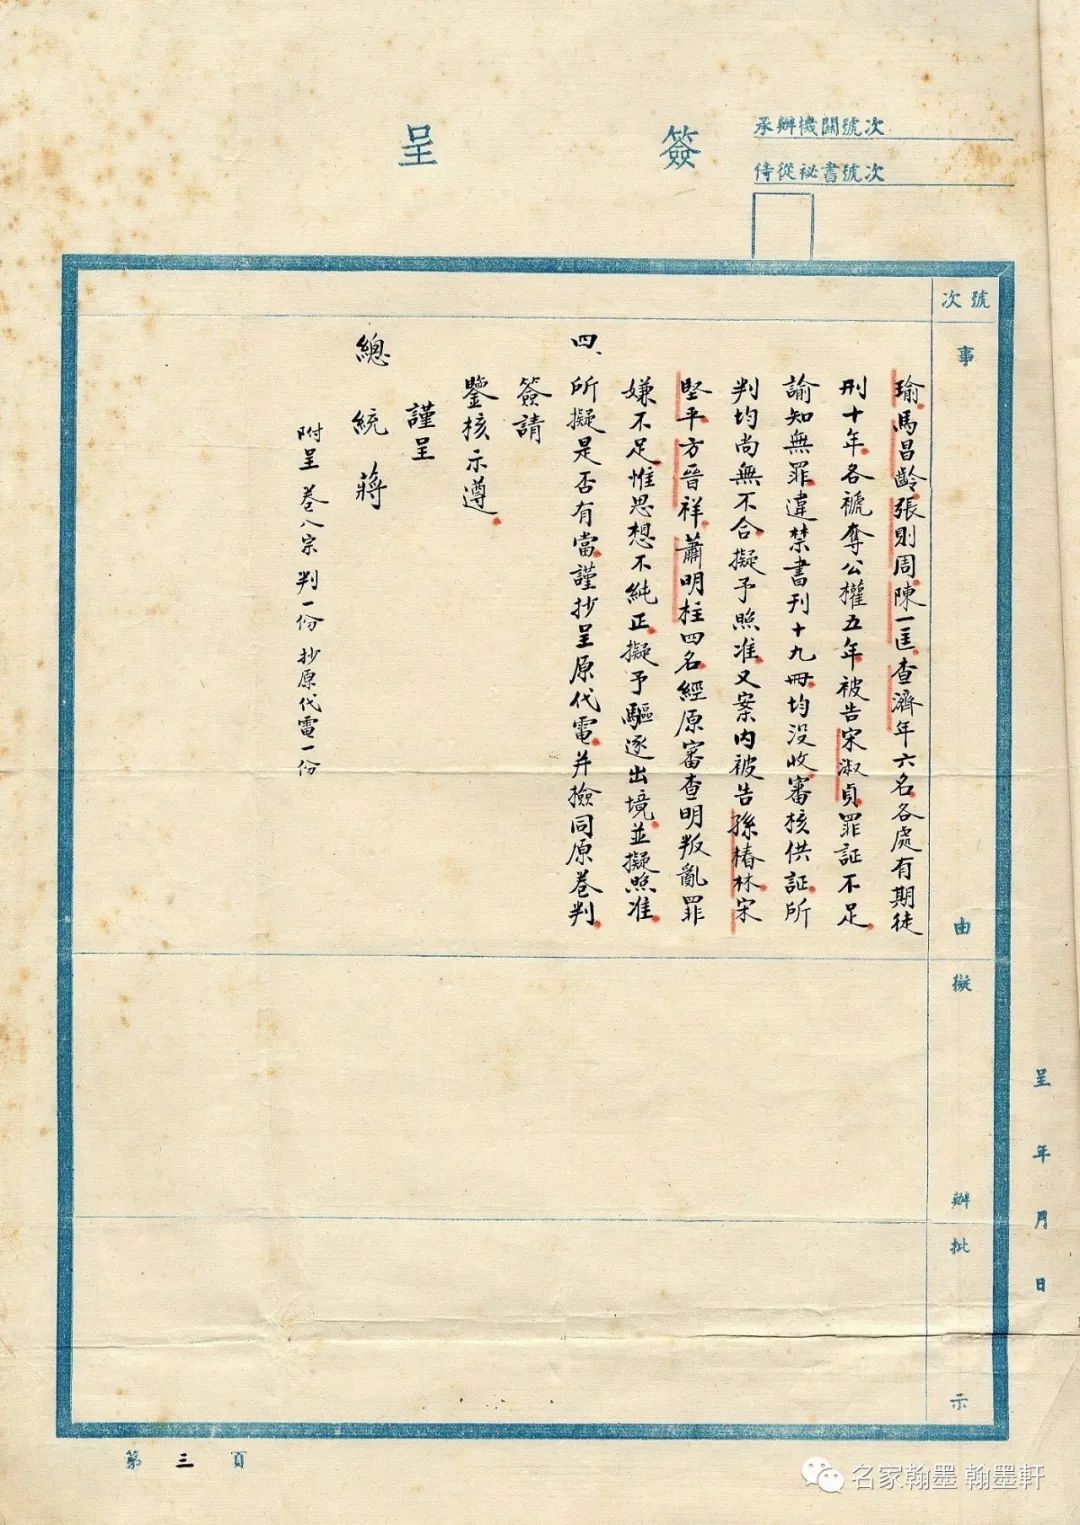 簽呈
承辦機關號次
侍從祕書號次
號次
事由
擬辦
批示
瑜馬昌齡張則周陳一匡查濟年六名各處有期徒
刑十年各褫奪公權五年被告宋淑貞罪証不足
諭知無罪違禁書刊十九冊均没收審核供証所
判均尚無不合擬予照准又案內被告孫椿林宋
堅平方晉祥蕭明柱四名經原審查明叛亂罪
嫌不足惟思想不純正擬予驅逐出境並擬照准
四、所擬是否有當謹抄呈原代電并撿同原卷判
簽請
鑒核示遵
謹呈
總統 蔣
附呈 卷八宗 判一份 抄原代電一份
呈 年 月 日
第三頁
名家翰墨 翰墨軒